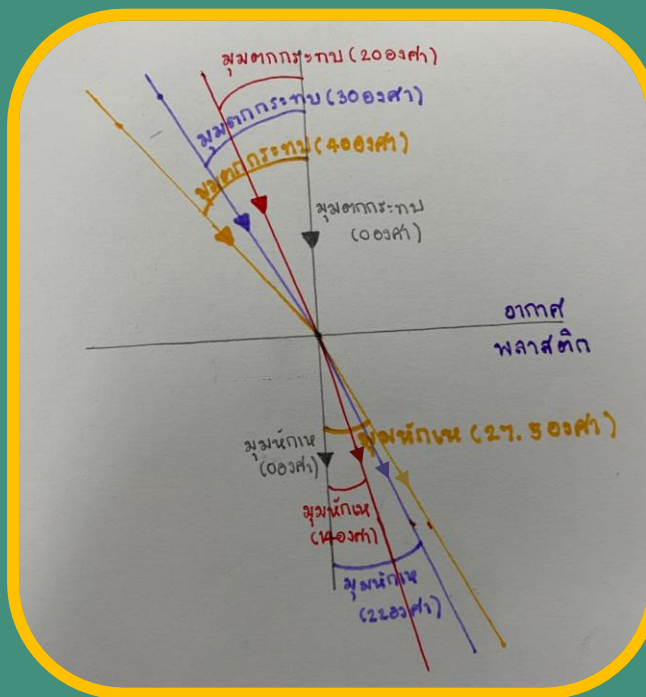 มุมตกกระทบ (20องศา)
มุมตกกระทบ (30องศา)
มุมตกกระทบ (40องศา)
มุมตกกระทบ
(0องศา)
อากาศ
พลาสติก
มุมหักเห (27.5องศา)
มุมหักเห
(0องศา)
มุมหักเห
(14องศา)
มุมหักเห
(22องศา)